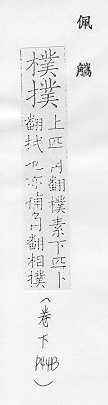 佩觿
樸撲
上匹角翻樸素下匹卜
翻拭也亦補角翻相撲
（卷下P44B）